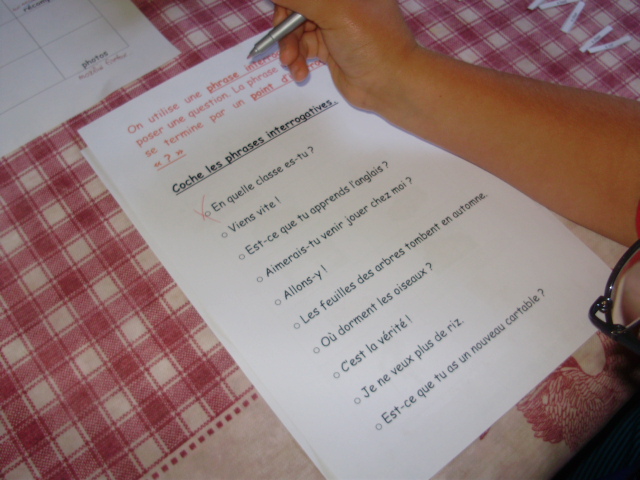 photos
On utilise une phrase
poser une question. La phrase
se termine par un point
« ? »
Coche les phrases interrogatives.
En quelle classe es-tu ?
Viens vite !
Est-ce que tu apprends l'anglais ?
Aimerais-tu venir jouer chez moi ?
Allons-y !
Les feuilles des arbres tombent en automne.
Où dorment les oiseaux ?
C'est la vérité !
Je ne veux plus de riz.
Est-ce que tu as un nouveau cartable ?